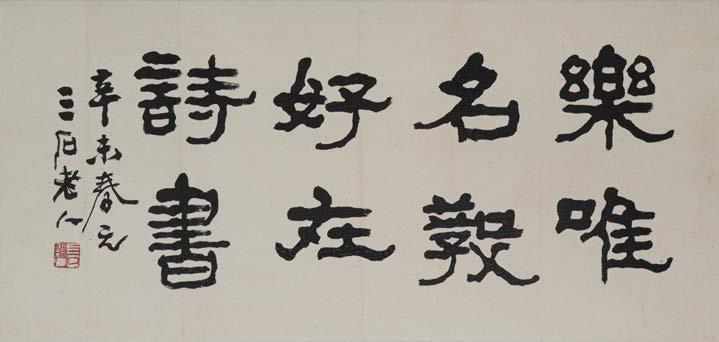 樂唯
名教
好在
詩書
辛未春元
三石老人